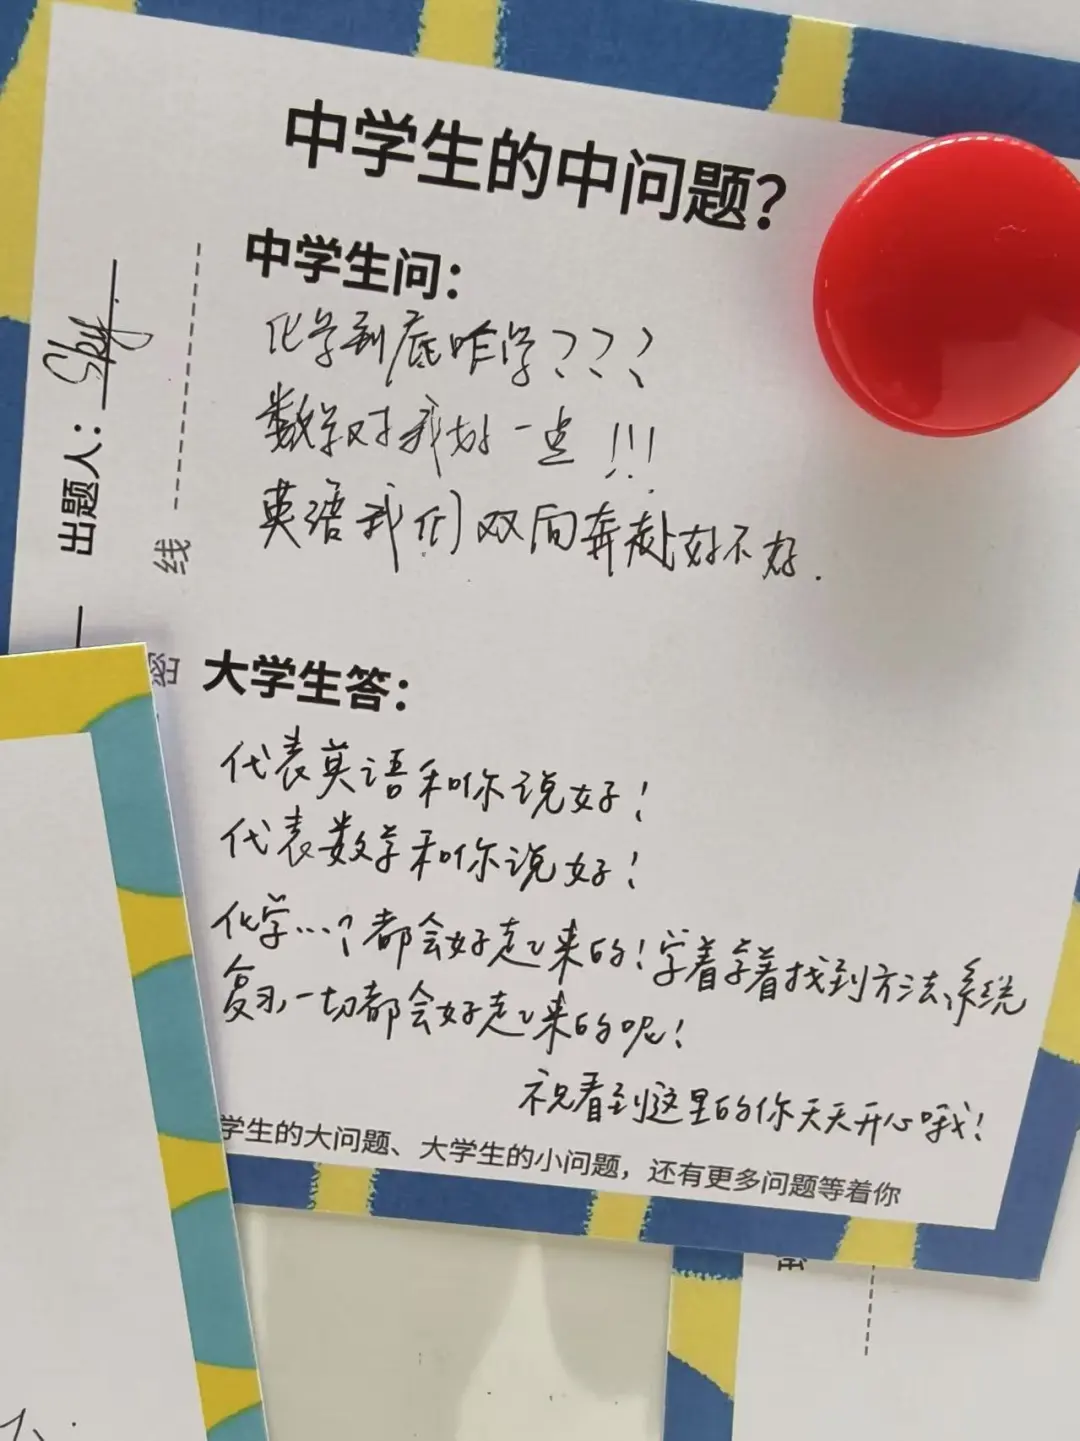 中学生的中问题？
中学生问：
化学到底咋学？？？
数学对我好一点！！！
英语我们双向奔赴好不好.
出题人：Sky.
线
密
大学生答：
代表英语和你说好！
代表数学和你说好！
化学…？都会好起来的！学着学着找到方法,系统
复习一切都会好起来的呢！
祝看到这里的你天天开心哦！
学生的大问题、大学生的小问题，还有更多问题等着你
密